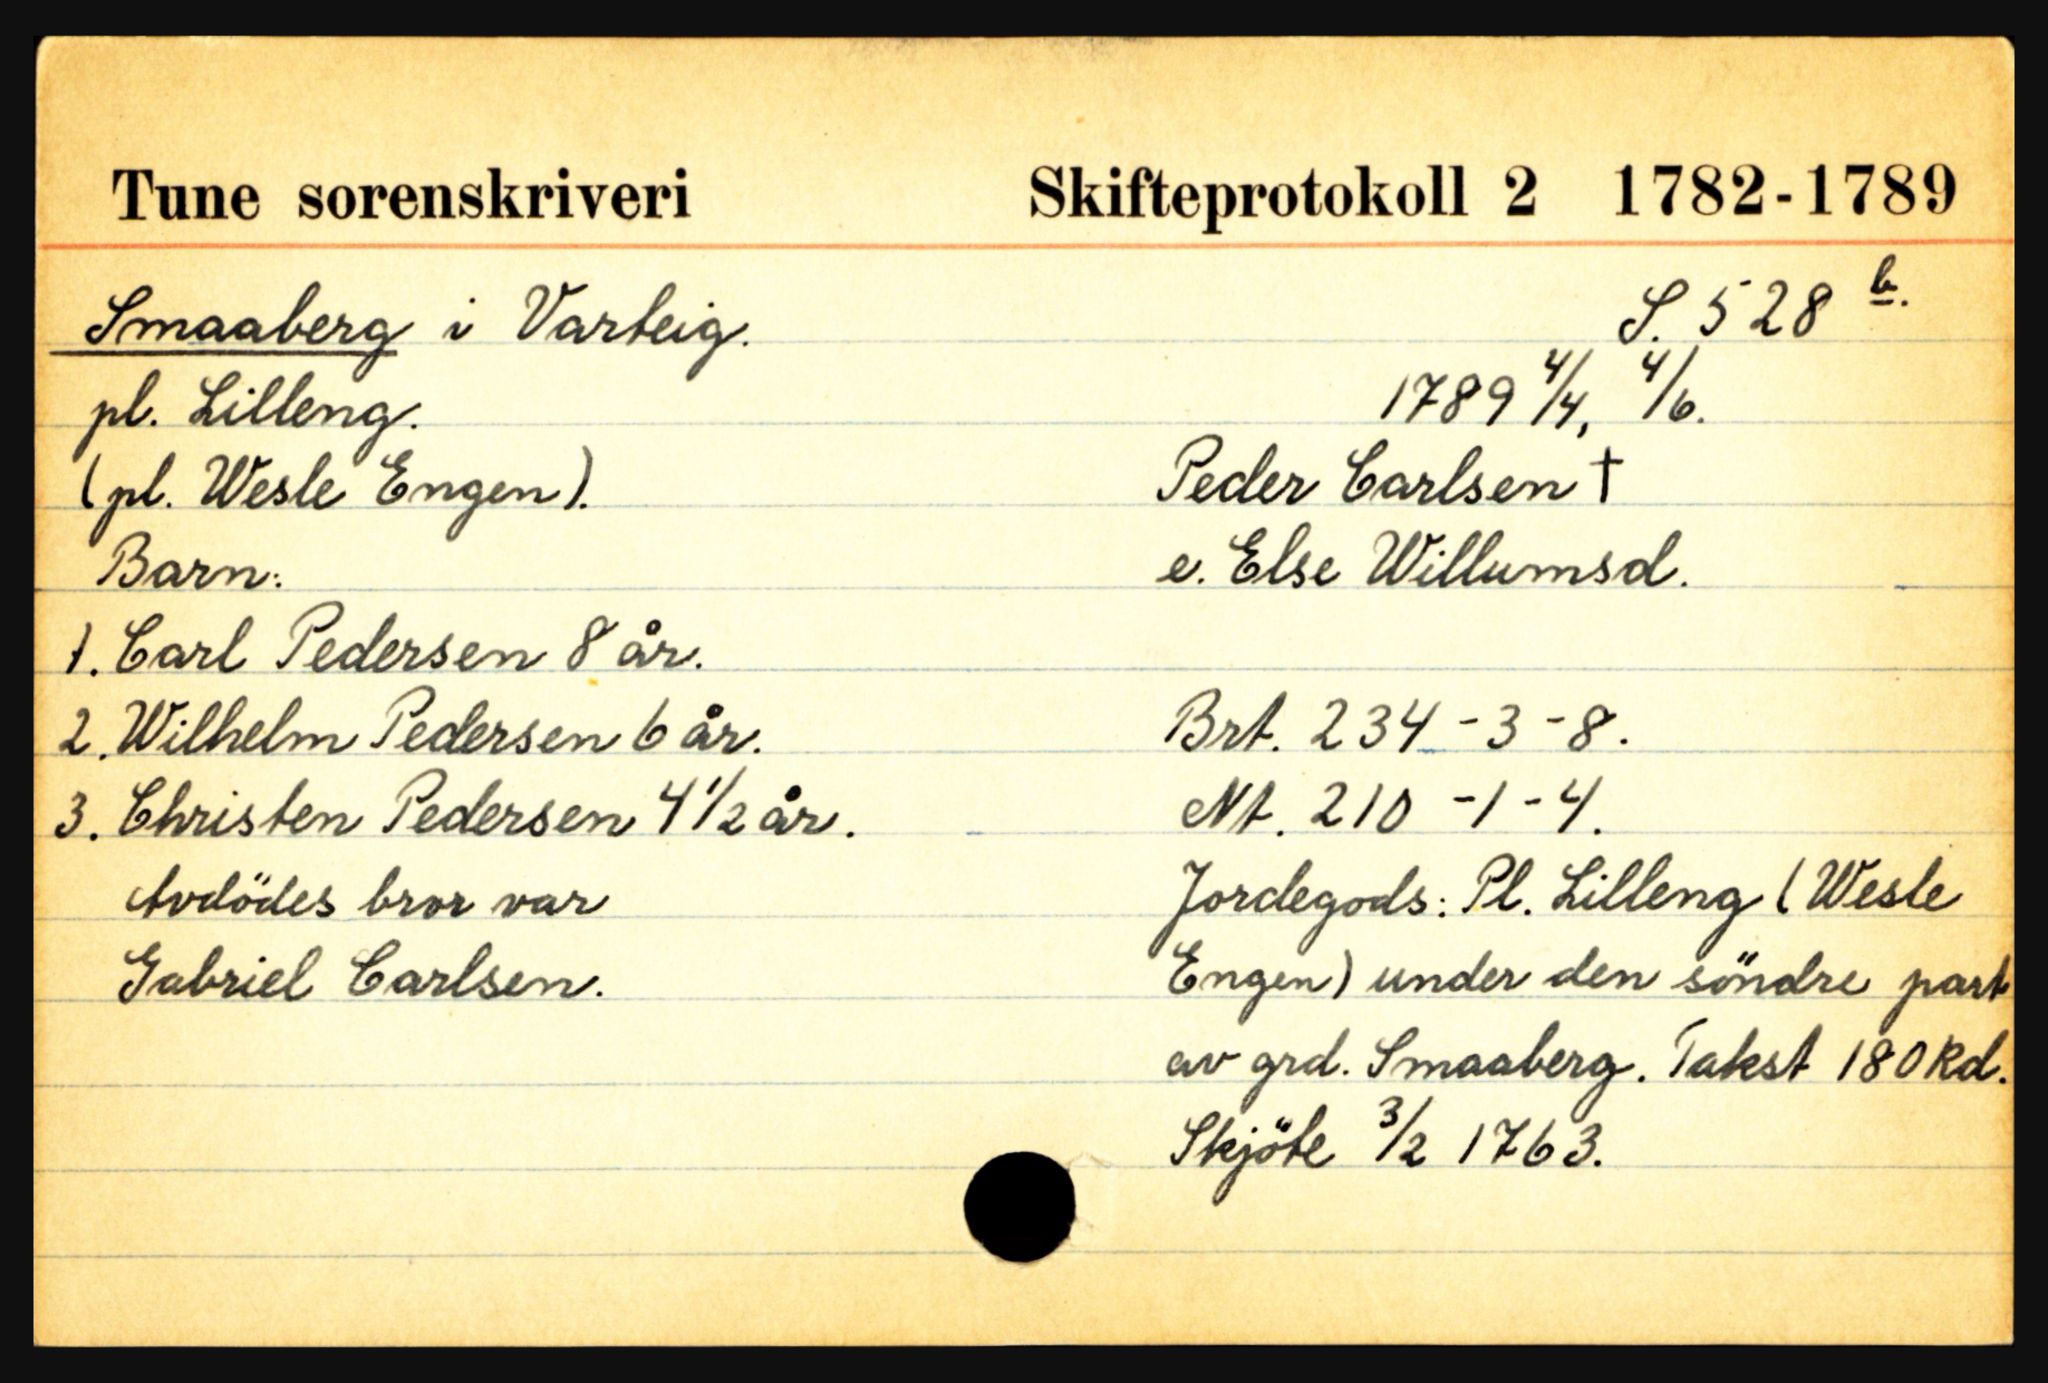 Tune sorenskriveri Skifteprotokoll 2 1782-1789
Smaaberg i Varteig.
pl. Lilleng.
(pl. Wesle Engen).
Barn:
1. Carl Pedersen 8 år.
2. Wilhelm Pedersen 6 år.
3. Christen Pedersen 4 1/2 år.
Avdödes bror var
Gabriel Carlsen.
S. 528 b.
1789 4/4, 4/6.
Peder Carlsen †
e. Else Willumsd.
Brt. 234-3-8.
Nt. 210-1-4.
Jordegods: Pl. Lilleng (Wesle
Engen) under den söndre part
av grd. Smaaberg. Takst 180 Rd.
Skjöte 3/2 1763.